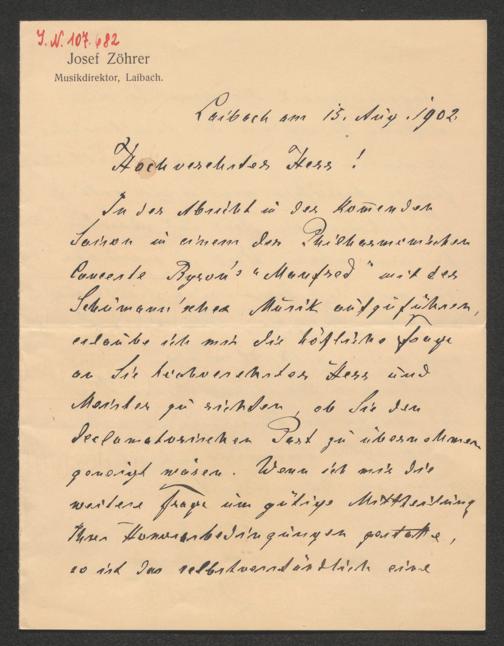 J. N. 107.682
Josef Zöhrer
Musikdirektor, Laibach.
Laibach am 15. Aug. 1902
Hochverehrter Herr!
In der Absicht in der kom̄enden
Saison in einem der Philharmonischen
Concerte Byron's "Manfred" mit der
Schumann'schen Musik aufzuführen,
erlaube ich mir die höfliche Frage
an Sie hochverehrter Herr und
Meister zu richten, ob Sie den
declamatorischen Part zu übernehmen
geneigt wären. Wenn ich mir die
weitere Frage um gütige Mittheilung
Ihrer Honorarbedingungen gestatte,
so ist das selbstverständlich eine